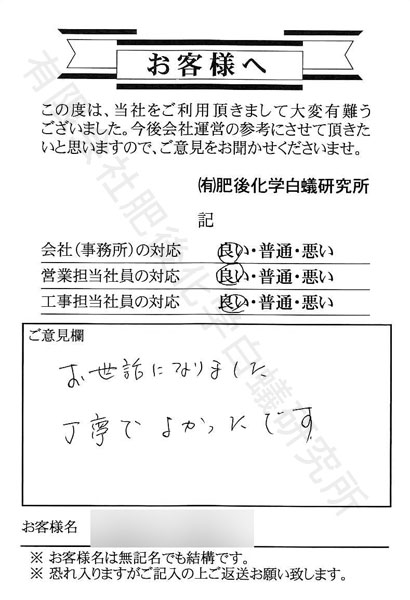 お客様へ
この度は、当社をご利用頂きまして大変有難う
ございました。今後会社運営の参考にさせて頂きた
いと思いますので、ご意見をお聞かせくださいませ。
㈲肥後化学白蟻研究所
記
会社（事務所）の対応 良い・普通・悪い
営業担当社員の対応 良い・普通・悪い
工事担当社員の対応 良い・普通・悪い
ご意見欄
お世話になりました
丁寧でよかったです
お客様名
※ お客様名は無記名でも結構です。
※ 恐れ入りますがご記入の上ご返送お願い致します。
有限会社肥後化学白蟻研究所